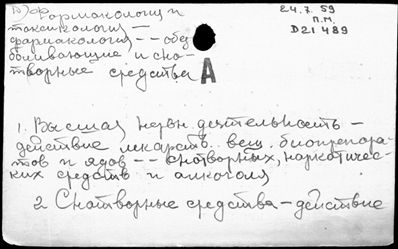 Фармакология и
токсикология --
фармакология -- обез
боливающие и сно-
творные средства
24.7.59
п.м.
D21489
А
1. Высшая нервн. деятельность -
действие лекарств. вещ. биопрепара
тов и ядов -- снотворных, наркотичес-
ких средств и алкоголя
2 Снотворные средства - действие